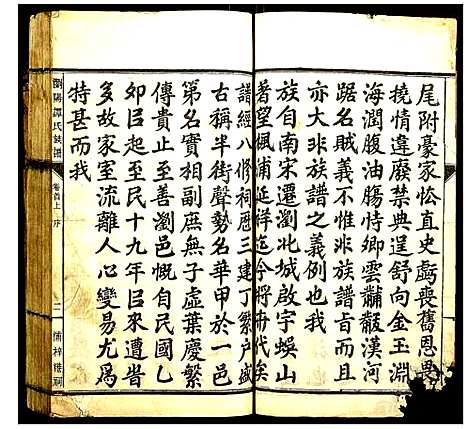 尾附豪家忪直史虧喪舊恩畏
撓情違廢禁典逞舒向金玉淵
海潤腹油腸恃卿雲黼黻漢河
踞名賊義不惟非族譜旨而且
亦大非族譜之義例也我
族自南宋遷瀏北城啟宇蜈山
著望楓浦延祥迄今將卅代矣
譜經八修祠歷三建丁繁户盛
古稱半街聲勢名華甲於一邑
第名實相副庶無子虛葉慶繁
傳貴止至善瀏邑慨自民國乙
卯巨起至民十九年巨來遭眚
多故家室流離人心變易尤為
特甚而我
瀏陽譚氏族譜
卷首上 序
二